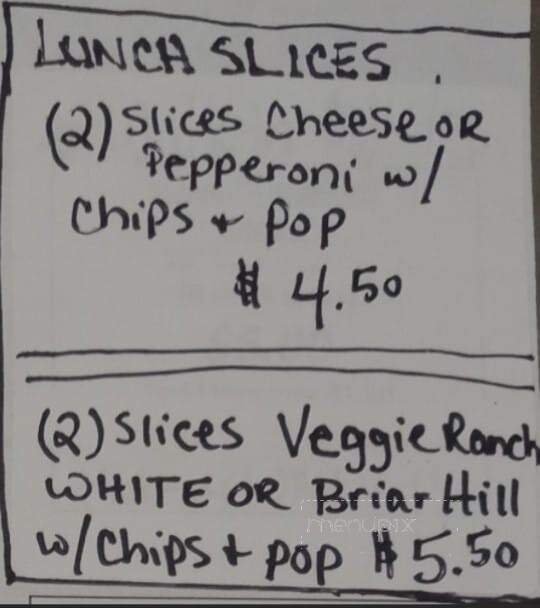 LUNCH SLICES.
(2) Slices Cheese OR
Pepperoni w/
Chips + Pop
$ 4.50
(2) Slices Veggie Ranch
WHITE OR Briar Hill
menupix
w/Chips + pop $5.50